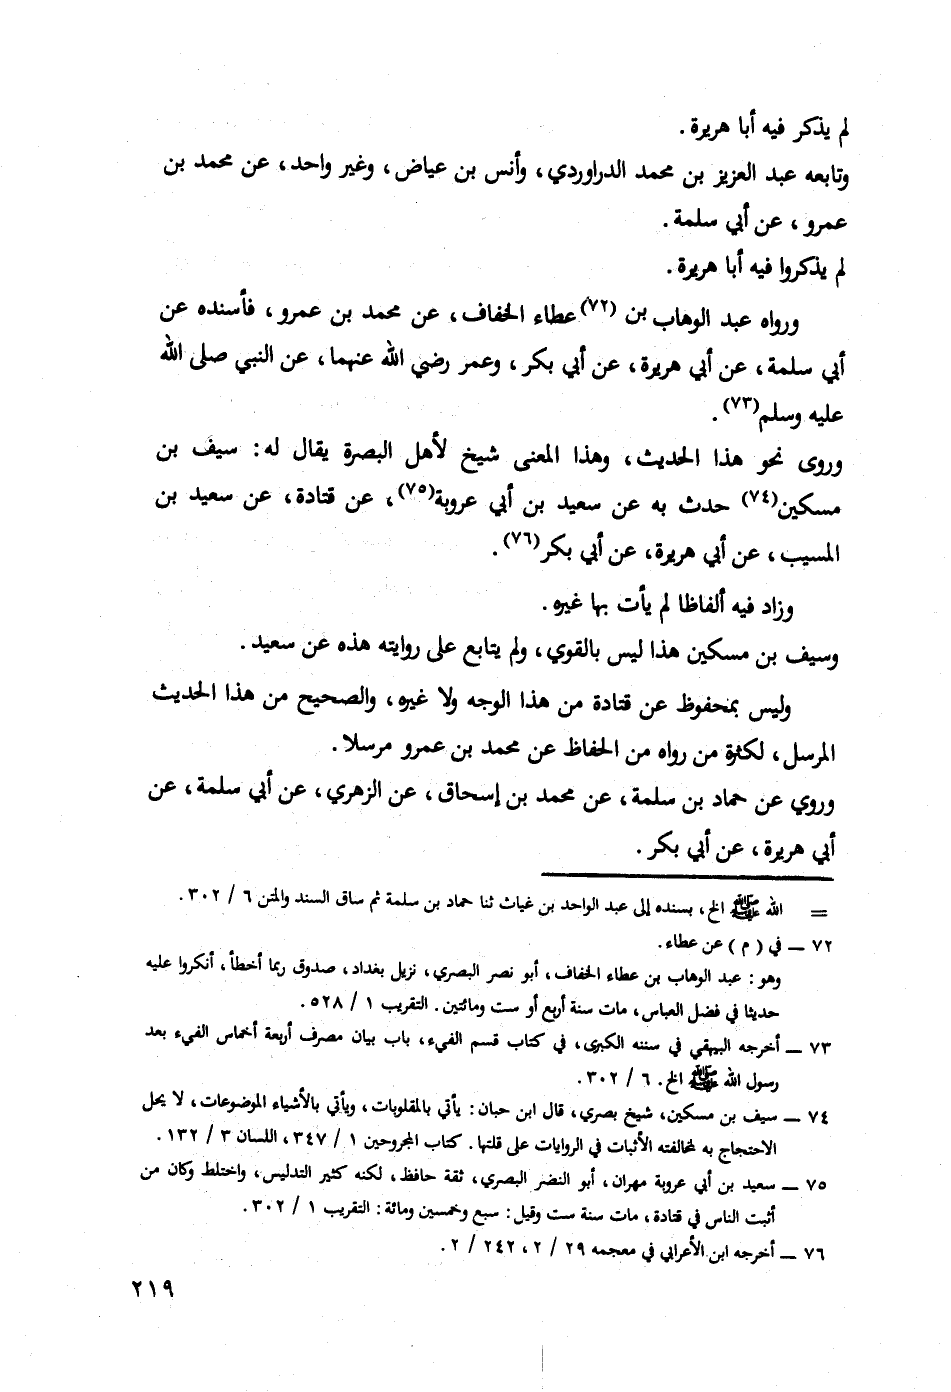 لم يذكر فيه أبا هريرة .
وتابعه عبد العزيز بن محمد الدراوردي ، وأنس بن عياض ، وغير واحد ، عن محمد بن
عمرو ، عن أبي سلمة .
لم يذكروا فيه أبا هريرة .
ورواه عبد الوهاب بن (٧٢) عطاء الخفاف ، عن محمد بن عمرو ، فأسنده عن
أبي سلمة ، عن أبي هريرة ، عن أبي بكر ، وعمر رضي الله عنهما ، عن النبي صلى الله
عليه وسلم (٧٣) .
وروى نحو هذا الحديث ، وهذا المعنى شيخ لأهل البصرة يقال له : سيف بن
مسكين (٧٤) حدث به عن سعيد بن أبي عروبة (٧٥) ، عن قتادة ، عن سعيد بن
المسيب ، عن أبي هريرة ، عن أبي بكر (٧٦) .
وزاد فيه ألفاظا لم يأت بها غيره .
وسيف بن مسكين هذا ليس بالقوي ، ولم يتابع على روايته هذه عن سعيد .
وليس بمحفوظ عن قتادة من هذا الوجه ولا غيره ، والصحيح من هذا الحديث
المرسل ، لكثرة من رواه من الحفاظ عن محمد بن عمرو مرسلا .
وروي عن حماد بن سلمة ، عن محمد بن إسحاق ، عن الزهري ، عن أبي سلمة ، عن
أبي هريرة ، عن أبي بكر .
= الله ﷺ الخ ، بسنده إلى عبد الواحد بن غياث ثنا حماد بن سلمة ثم ساق السند والمتن ٦ / ٣٠٢ .
٧٢ ــ في ( م ) عن عطاء .
وهو : عبد الوهاب بن عطاء الخفاف ، أبو نصر البصري ، نزيل بغداد ، صدوق ربما أخطأ ، أنكروا عليه
حديثا في فضل العباس ، مات سنة أربع أو ست ومائتين . التقريب ١ / ٥٢٨ .
٧٣ ــ أخرجه البيهقي في سننه الكبرى ، في كتاب قسم الفيء ، باب بيان مصرف أربعة أخماس الفيء بعد
رسول الله ﷺ الخ . ٦ / ٣٠٢ .
٧٤ ــ سيف بن مسكين ، شيخ بصري ، قال ابن حبان : يأتي بالمقلوبات ، ويأتي بالأشياء الموضوعات ، لا يحل
الاحتجاج به لمخالفته الأثبات في الروايات على قلتها . كتاب المجروحين ١ / ٣٤٧ ، اللسان ٣ / ١٣٢ .
٧٥ ــ سعيد بن أبي عروبة مهران ، أبو النضر البصري ، ثقة حافظ ، لكنه كثير التدليس ، واختلط وكان من
أثبت الناس في قتادة ، مات سنة ست وقيل : سبع وخمسين ومائة : التقريب ١ / ٣٠٢ .
٧٦ ــ أخرجه ابن الأعرابي في معجمه ٢٩ / ٢ ، ٢٤٢ / ٢ .
٢١٩